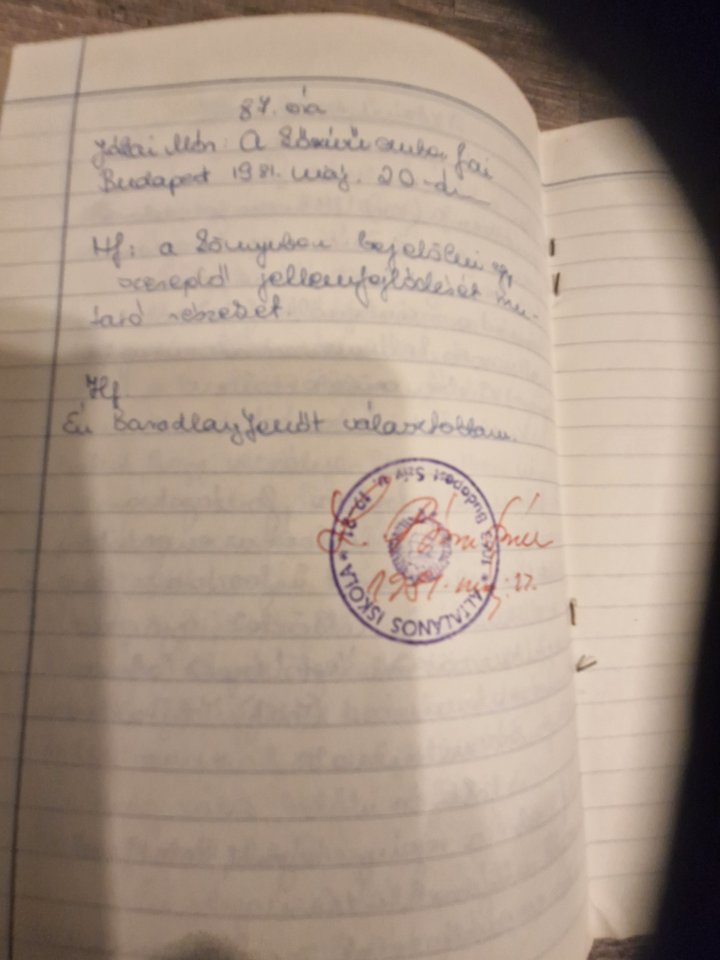 87. óra
Jókai Mór: A kőszívű ember fiai
Budapest 1981. máj. 20-án
Hf: a könyvben bejelölni egy
szereplő jellemfejlődését mu-
tató részeket.
Hf
Én Baradlay Jenőt választottam.
1981. máj. 27.
ÁLTALÁNOS ISKOLA * Budapest Szív u. 19-21.